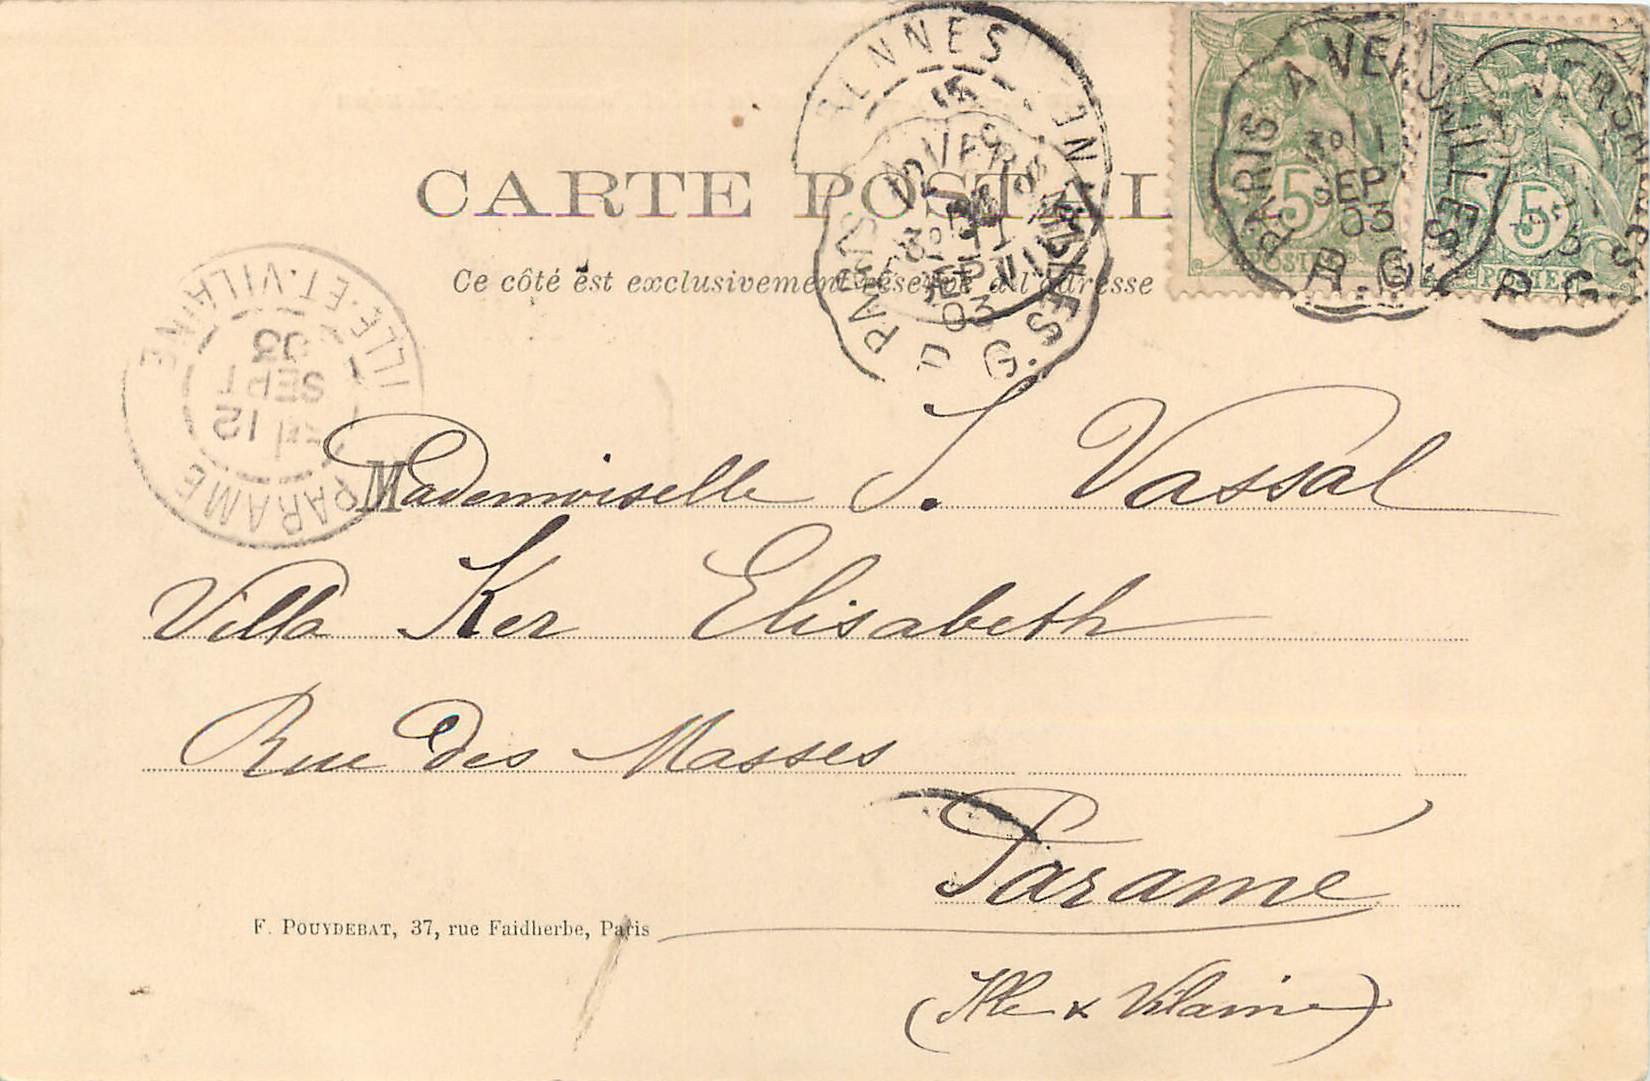 CARTE POSTAL
Ce côté est exclusivement réservé à l'adresse
RENNES
PARIS A VERSAILLES
3º 11
SEP
03
R. G.
PARIS A VERSAILLES
3º 11
SEP
03
R. G.
5
POSTES
5
POSTES
VERSAILLES
R G
ILLE-ET-VILAINE
PARAMÉ
12
SEPT
03
Mademoiselle S. Vassal
Villa Ker Elisabeth
Rue des Masses
Paramé
(Ille & Vilaine)
F. POUYDEBAT, 37, rue Faidherbe, Paris